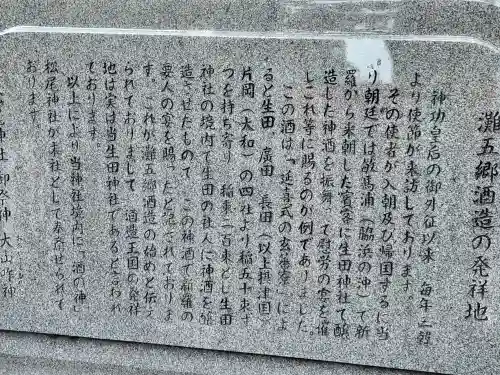 灘五郷酒造の発祥地
神功皇后の御外征以来 毎年三韓
より使節が来訪しております。
その使者が入朝及び帰国するに当
り朝廷では敏馬浦(脇浜の沖)で新
羅から来朝した賓客に生田神社で醸
造した神酒を振舞って慰労の宴を催
しこれ等に賜るのが例でありました
この酒は「延喜式の玄蕃寮」によ
ると生田 廣田 長田(以上摂津国)
片岡(大和)の四社より稲五十束ず
つを持ち寄り 稲束二百束とし生田
神社の境内で生田の社人に神酒を醸
造させたもので この神酒で新羅の
要人の宴を賜ったと記されておりま
す。これが灘五郷酒造の始めと伝え
られておりまして 酒造王国の発祥
地は実は当生田神社であると言われ
ております。
以上により当神社境内に「酒の神」
松尾神社が末社として奉斎せられて
おります。
松尾神社 御祭神 大山咋神